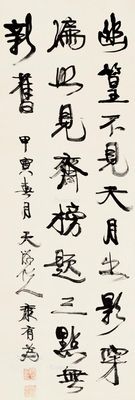 幽篁不見天月出影穿
漏照見齋榜題三點無
新舊 甲寅春月 天游化人 康有為